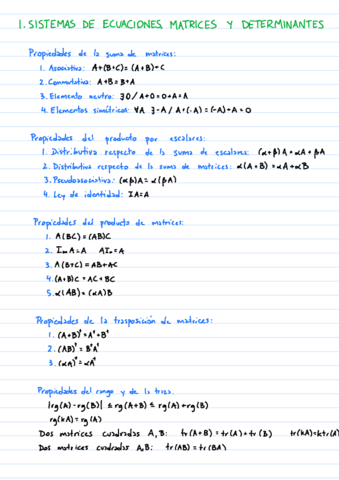 1. SISTEMAS DE ECUACIONES, MATRICES Y DETERMINANTES
Propiedades de la suma de matrices:
1. Asociativa: A+(B+C)=(A+B)+C
2. Conmutativa: A+B=B+A
3. Elemento neutro: ∃0/A+0=0+A=A
4. Elementos simétricos: ∀A ∃-A/A+(-A)=(-A)+A=0
Propiedades del producto por escalares:
1. Distributiva respecto de la suma de escalares: (α+β)A=αA+βA
2. Distributiva respecto de la suma de matrices: α(A+B)=αA+αB
3. Pseudoasociativa: (αβ)A=α(βA)
4. Ley de identidad: 1A=A
Propiedades del producto de matrices:
1. A(BC)=(AB)C
2. Iₘ A=A AIₙ=A
3. A(B+C)=AB+AC
4. (A+B)C=AC+BC
5. α(AB)=(αA)B
Propiedades de la trasposición de matrices:
1. (A+B)ᵗ=Aᵗ+Bᵗ
2. (AB)ᵗ=BᵗAᵗ
3. (αA)ᵗ=αAᵗ
Propiedades del rango y de la traza.
|rg(A)-rg(B)| ≤ rg(A+B) ≤ rg(A)+rg(B)
rg(kA)=rg(A)
Dos matrices cuadradas A, B: tr(A+B)=tr(A)+tr(B) tr(kA)=ktr(A)
Dos matrices cuadradas A,B: tr(AB)=tr(BA)